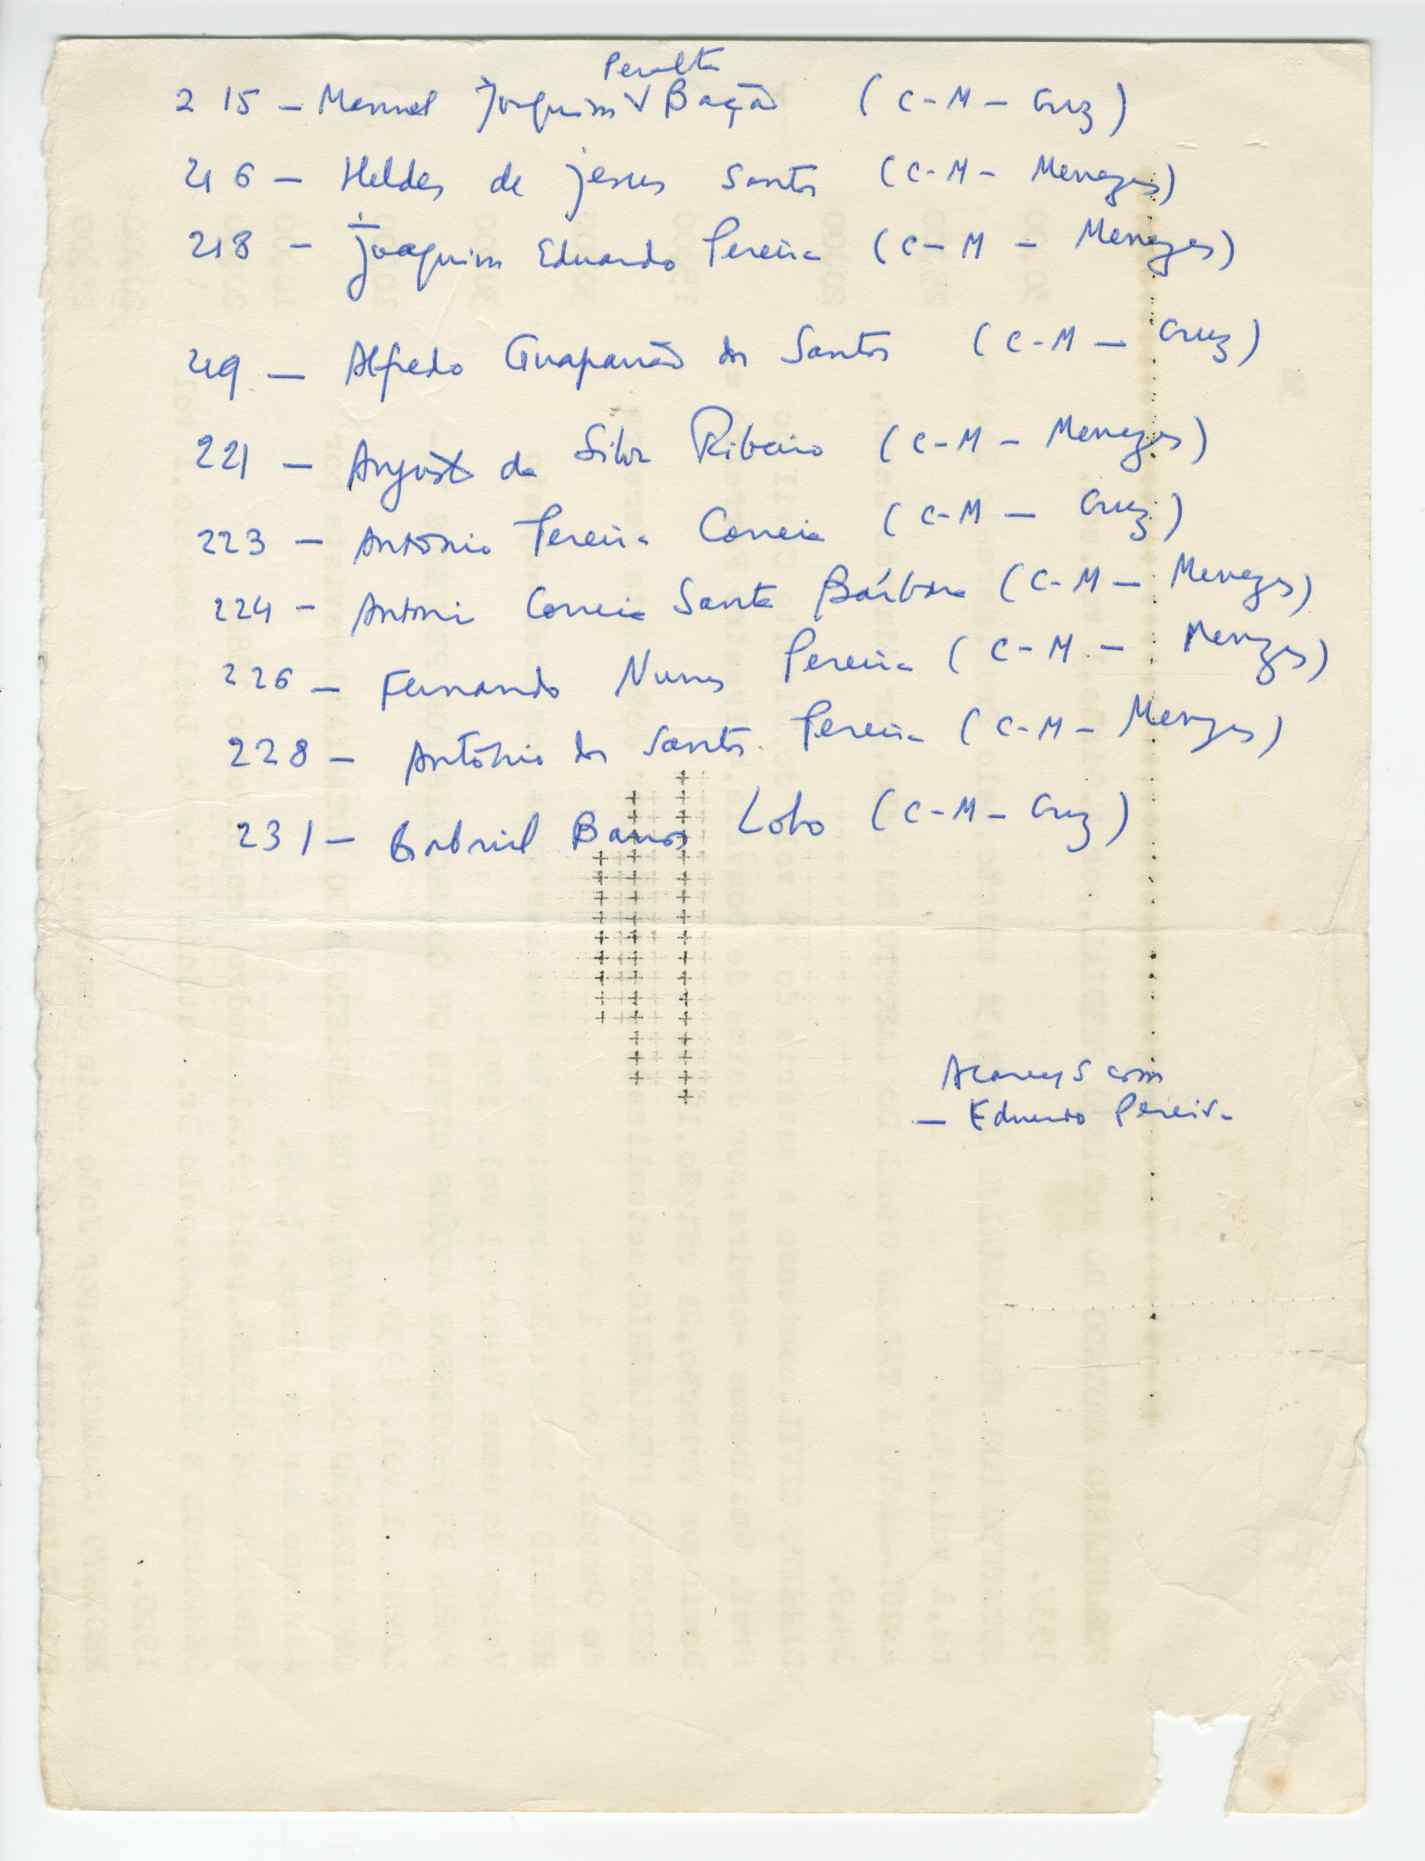 Peralta
215 – Manuel Joaquim V Bação (C-M – Cruz)
216 – Helder de Jesus Santos (C-M – Menezes)
218 – Joaquim Eduardo Pereira (C-M – Menezes)
219 – Alfredo Guaparrão dos Santos (C-M – Cruz)
221 – Augusto da Silva Ribeiro (C-M – Menezes)
223 – António Pereira Correia (C-M – Cruz)
224 – António Correia Santa Bárbara (C-M – Menezes)
226 – Fernando Nunes Pereira (C-M – Menezes)
228 – António dos Santos Pereira (C-M – Menezes)
231 – Gabriel Barros Lobo (C-M – Cruz)
com
– Eduardo Pereira